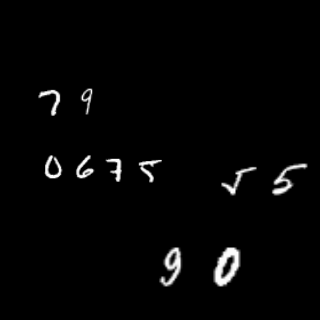 79
0675
55
90